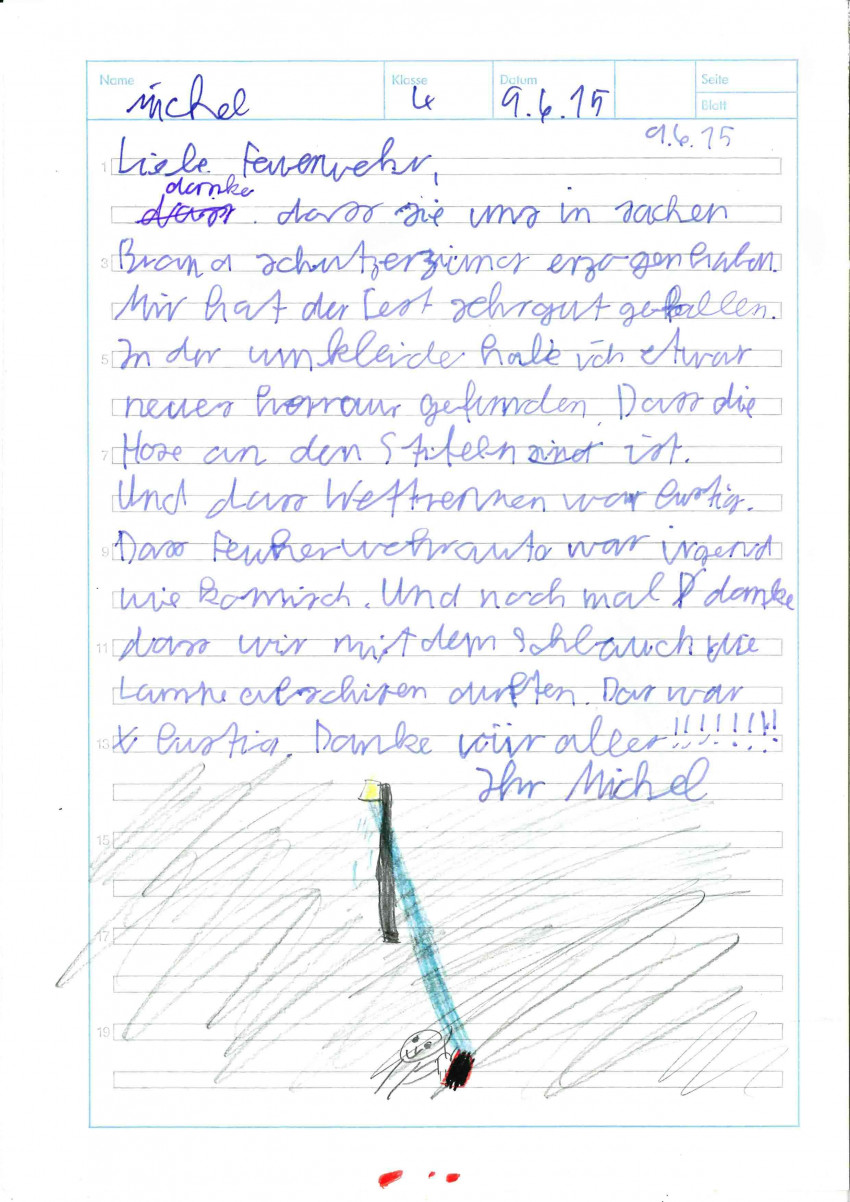 Name
Michel
Klasse
4
Datum
9.6.15
Seite
Blatt
9.6.15
1 Liebe Feuerwehr,
danke
dass dass sie uns in sachen
3 Brand schutzerziung erzogen haben.
Mir hat der Test sehr gut gefallen.
5 In der umkleide habe ich etwas
neues herraus gefunden. Dass die
7 Hose an den Stifeln sind ist.
Und dass Wettrennen war lustig.
9 Dass Feuherwehrauto war irgend
wie komisch. Und noch mal danke
11 dass wir mit dem Schlauch die
Lampe abschisen durften. Das war
13 lustig. Danke vüir alles!!!!!!!!
Ihr Michel
15
17
19